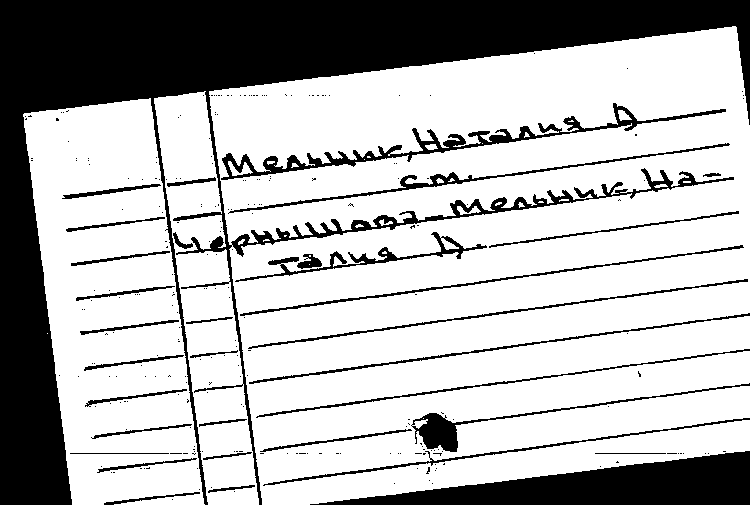 Мельник, Наталия Д
см.
Чернышова-Мельник, На-
талия Д.